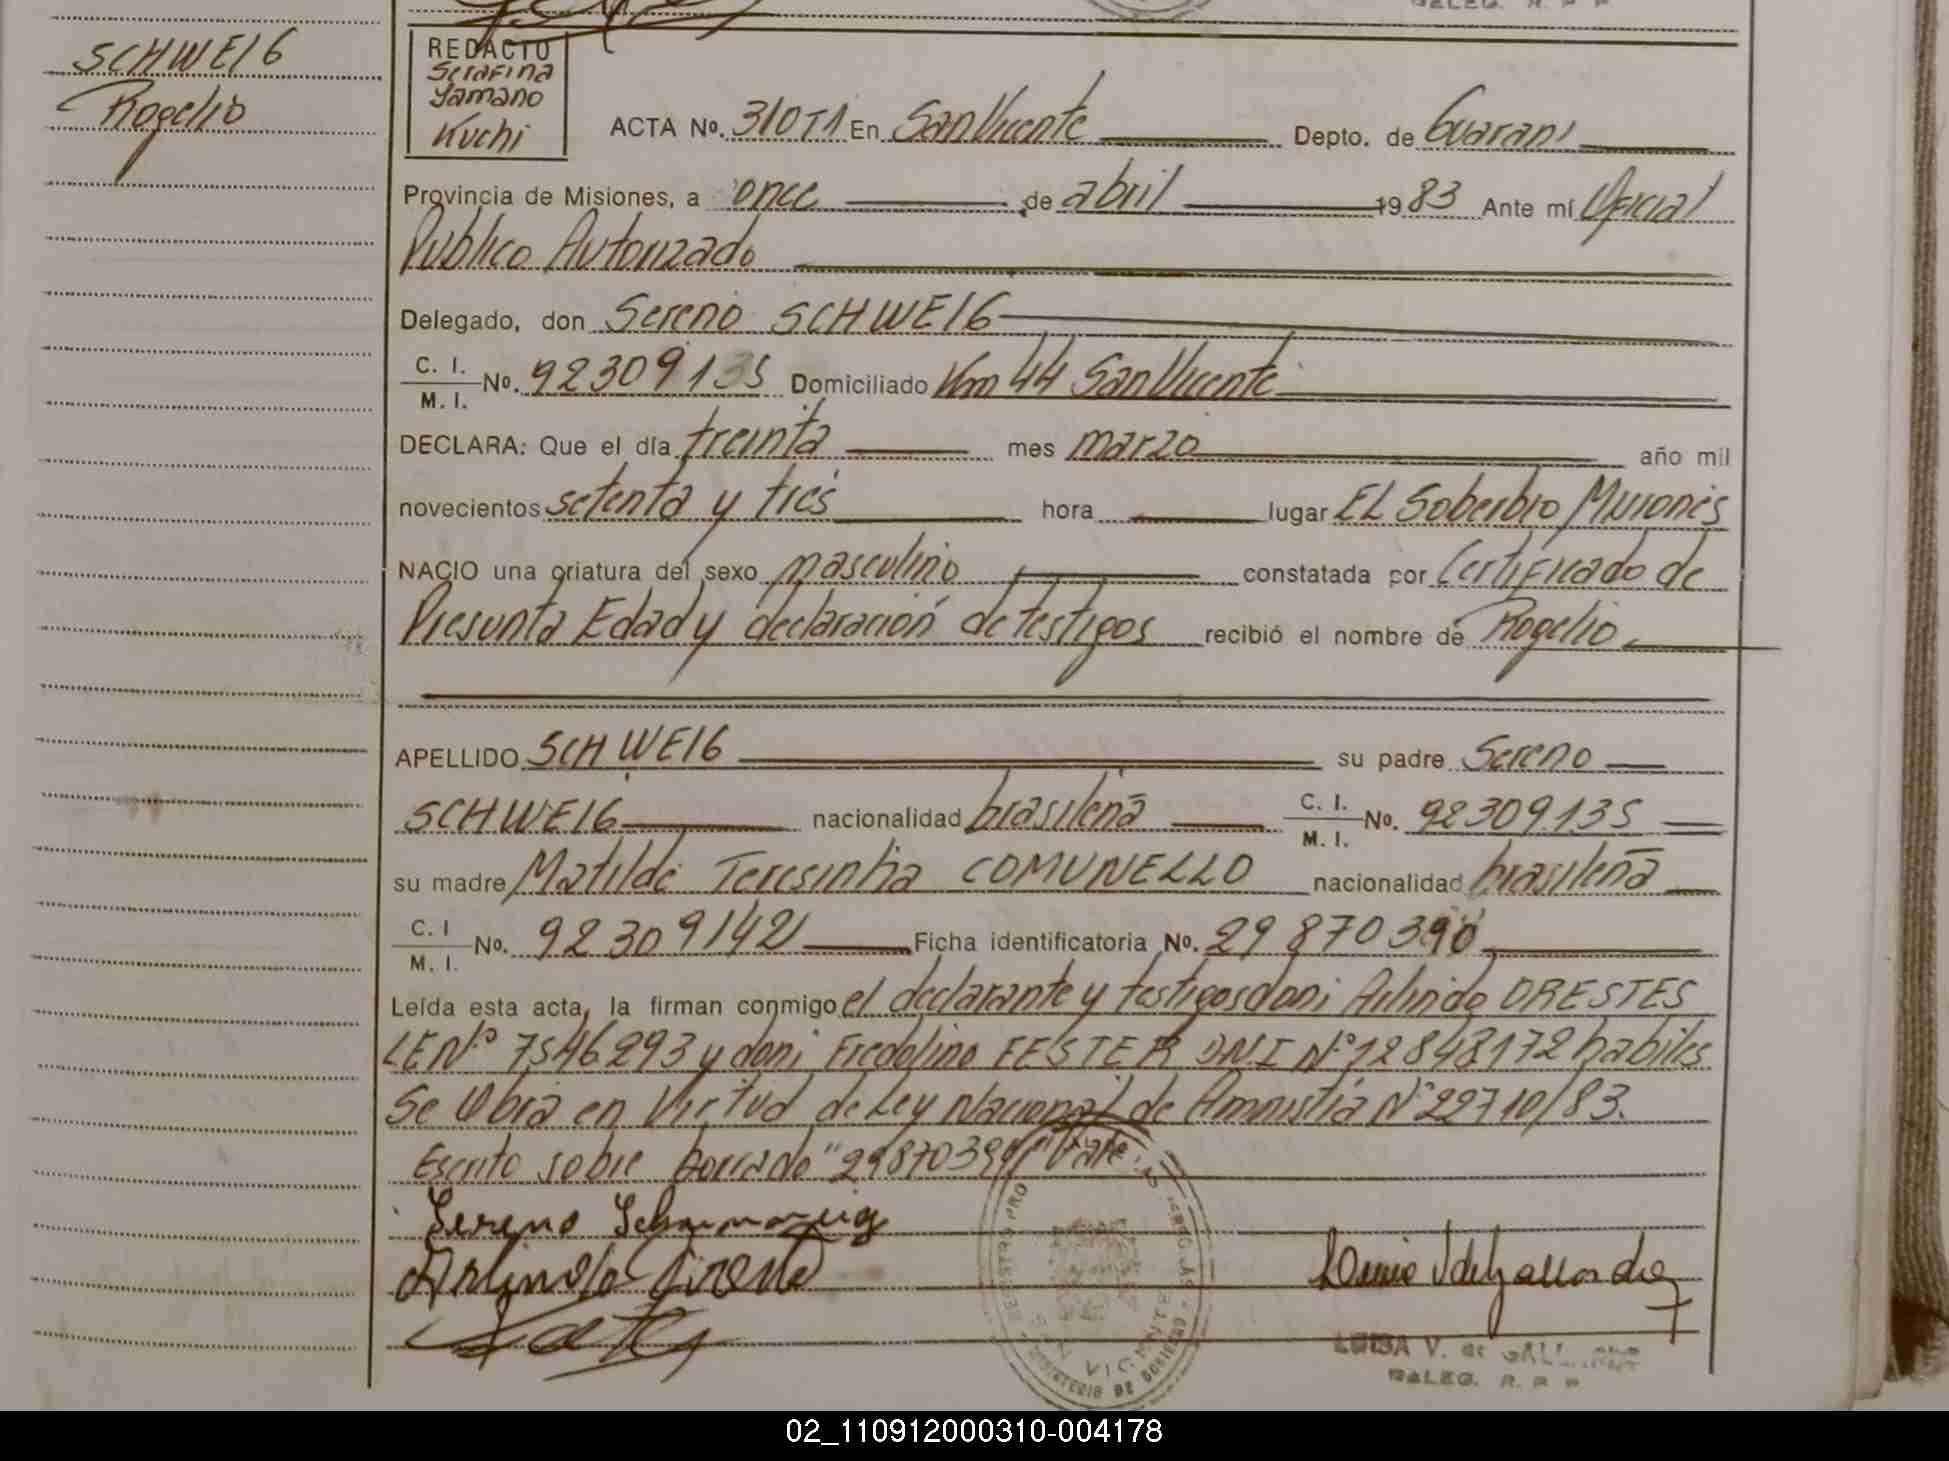 SCHWEIG
Rogelio
REDACTO
Serafina
Yamano
Kuchi
ACTA No. 310T1 En San Vicente Depto. de Guarani
Provincia de Misiones, a once de abril 1983 Ante mí Oficial
Publico Autorizado
Delegado, don Sereno SCHWEIG
C. I.
M. I. No. 92309135 Domiciliado Km 44 San Vicente
DECLARA: Que el día treinta mes marzo año mil
novecientos setenta y tres hora lugar EL Soberbio Misiones
NACIO una criatura del sexo masculino constatada por Certificado de
Presunta Edad y declaración de testigos recibió el nombre de Rogelio
APELLIDO SCHWEIG su padre Sereno
SCHWEIG nacionalidad brasileña C. I.
M. I. No. 92309135
su madre Matilde Teresinha COMUNELLO nacionalidad brasileña
C. I
M. I. No. 92309142 Ficha identificatoria No. 29870390
Leída esta acta, la firman conmigo el declarante y testigos don: Arlindo ORESTES
LE Nº 7546293 y don: Fredolino FESTER DNI Nº 12848172 habiles
Se Obra en Virtud de Ley Nacional de Amnistia Nº 22710/83.
Escrito sobre borrado "2987039 " Vale
Sereno
Arlindo
SAN VICENTE
MINISTERIO DE GOBIERNO
LUISA V. de
DELEG. R. P. P.
02_110912000310-004178